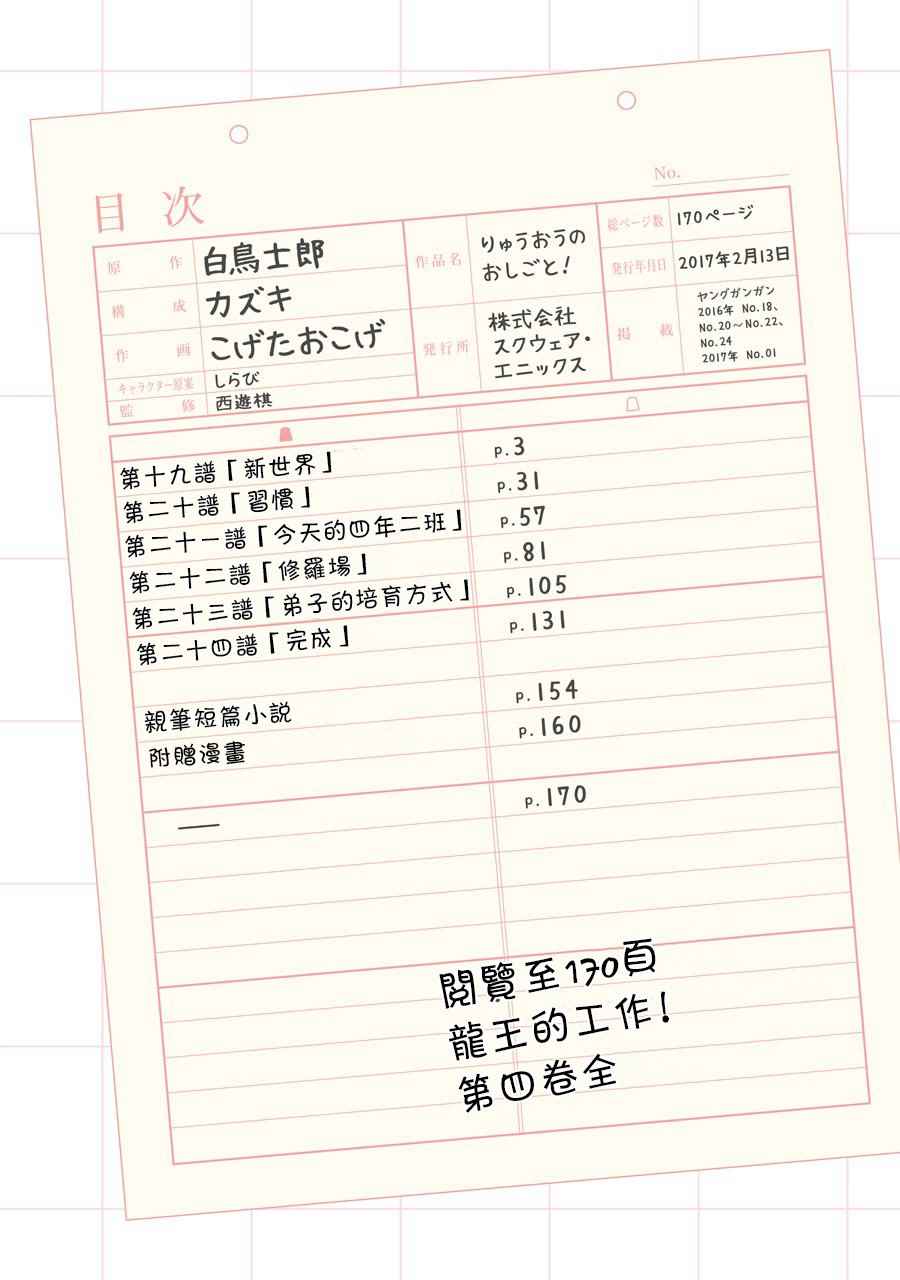 No.
目次
原作 白鳥士郎
構成 カズキ
作画 こげたおこげ
キャラクター原案 しらび
監修 西遊棋
作品名 りゅうおうの
おしごと!
発行所 株式会社
スクウェア・
エニックス
総ページ数 170ページ
発行年月日 2017年2月13日
掲載 ヤングガンガン
2016年 No.18、
No.20〜No.22、
No.24
2017年 No.01
第十九譜「新世界」 p.3
第二十譜「習慣」 p.31
第二十一譜「今天的四年二班」 p.57
第二十二譜「修羅場」 p.81
第二十三譜「弟子的培育方式」 p.105
第二十四譜「完成」 p.131
親筆短篇小説 p.154
附贈漫畫 p.160
— p.170
閱覽至170頁
龍王的工作!
第四卷全